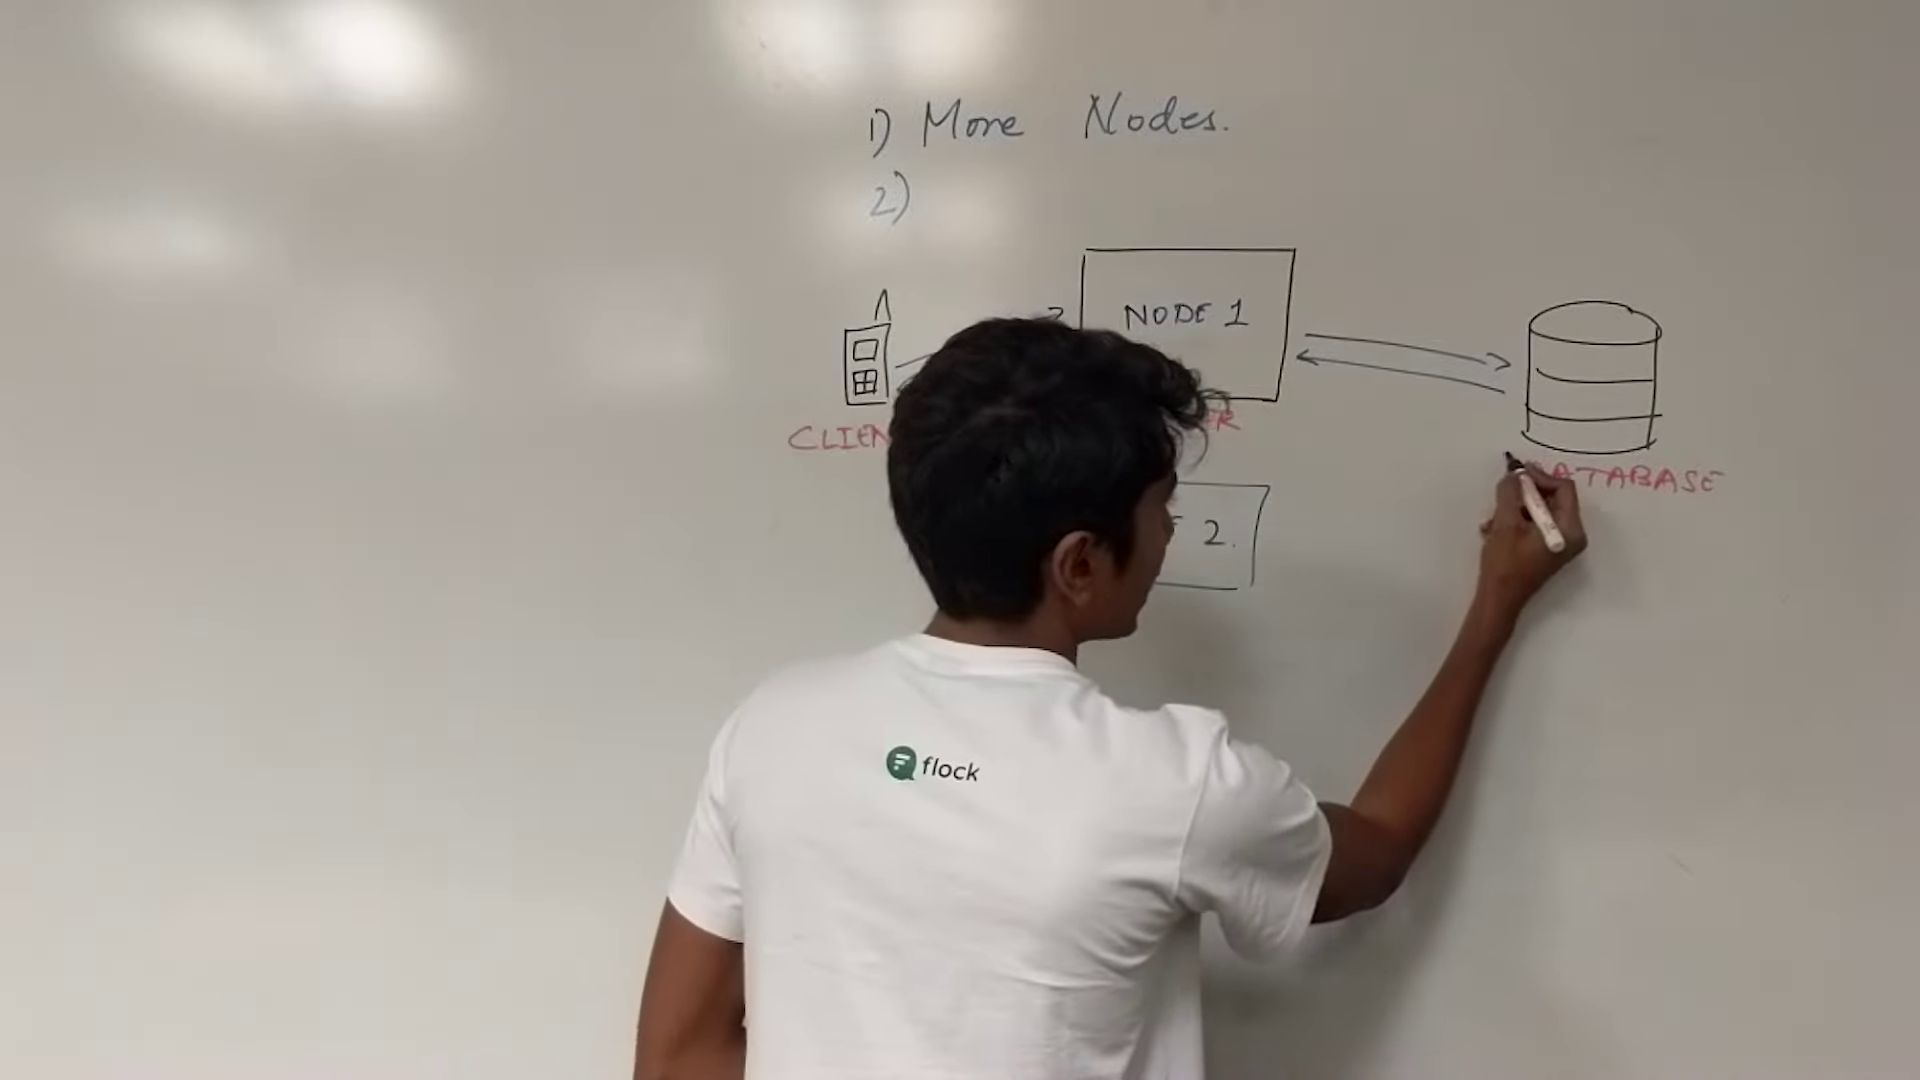 1) More Nodes.
2)
NODE 1
CLIEN
ER
DATABASE
2.
flock